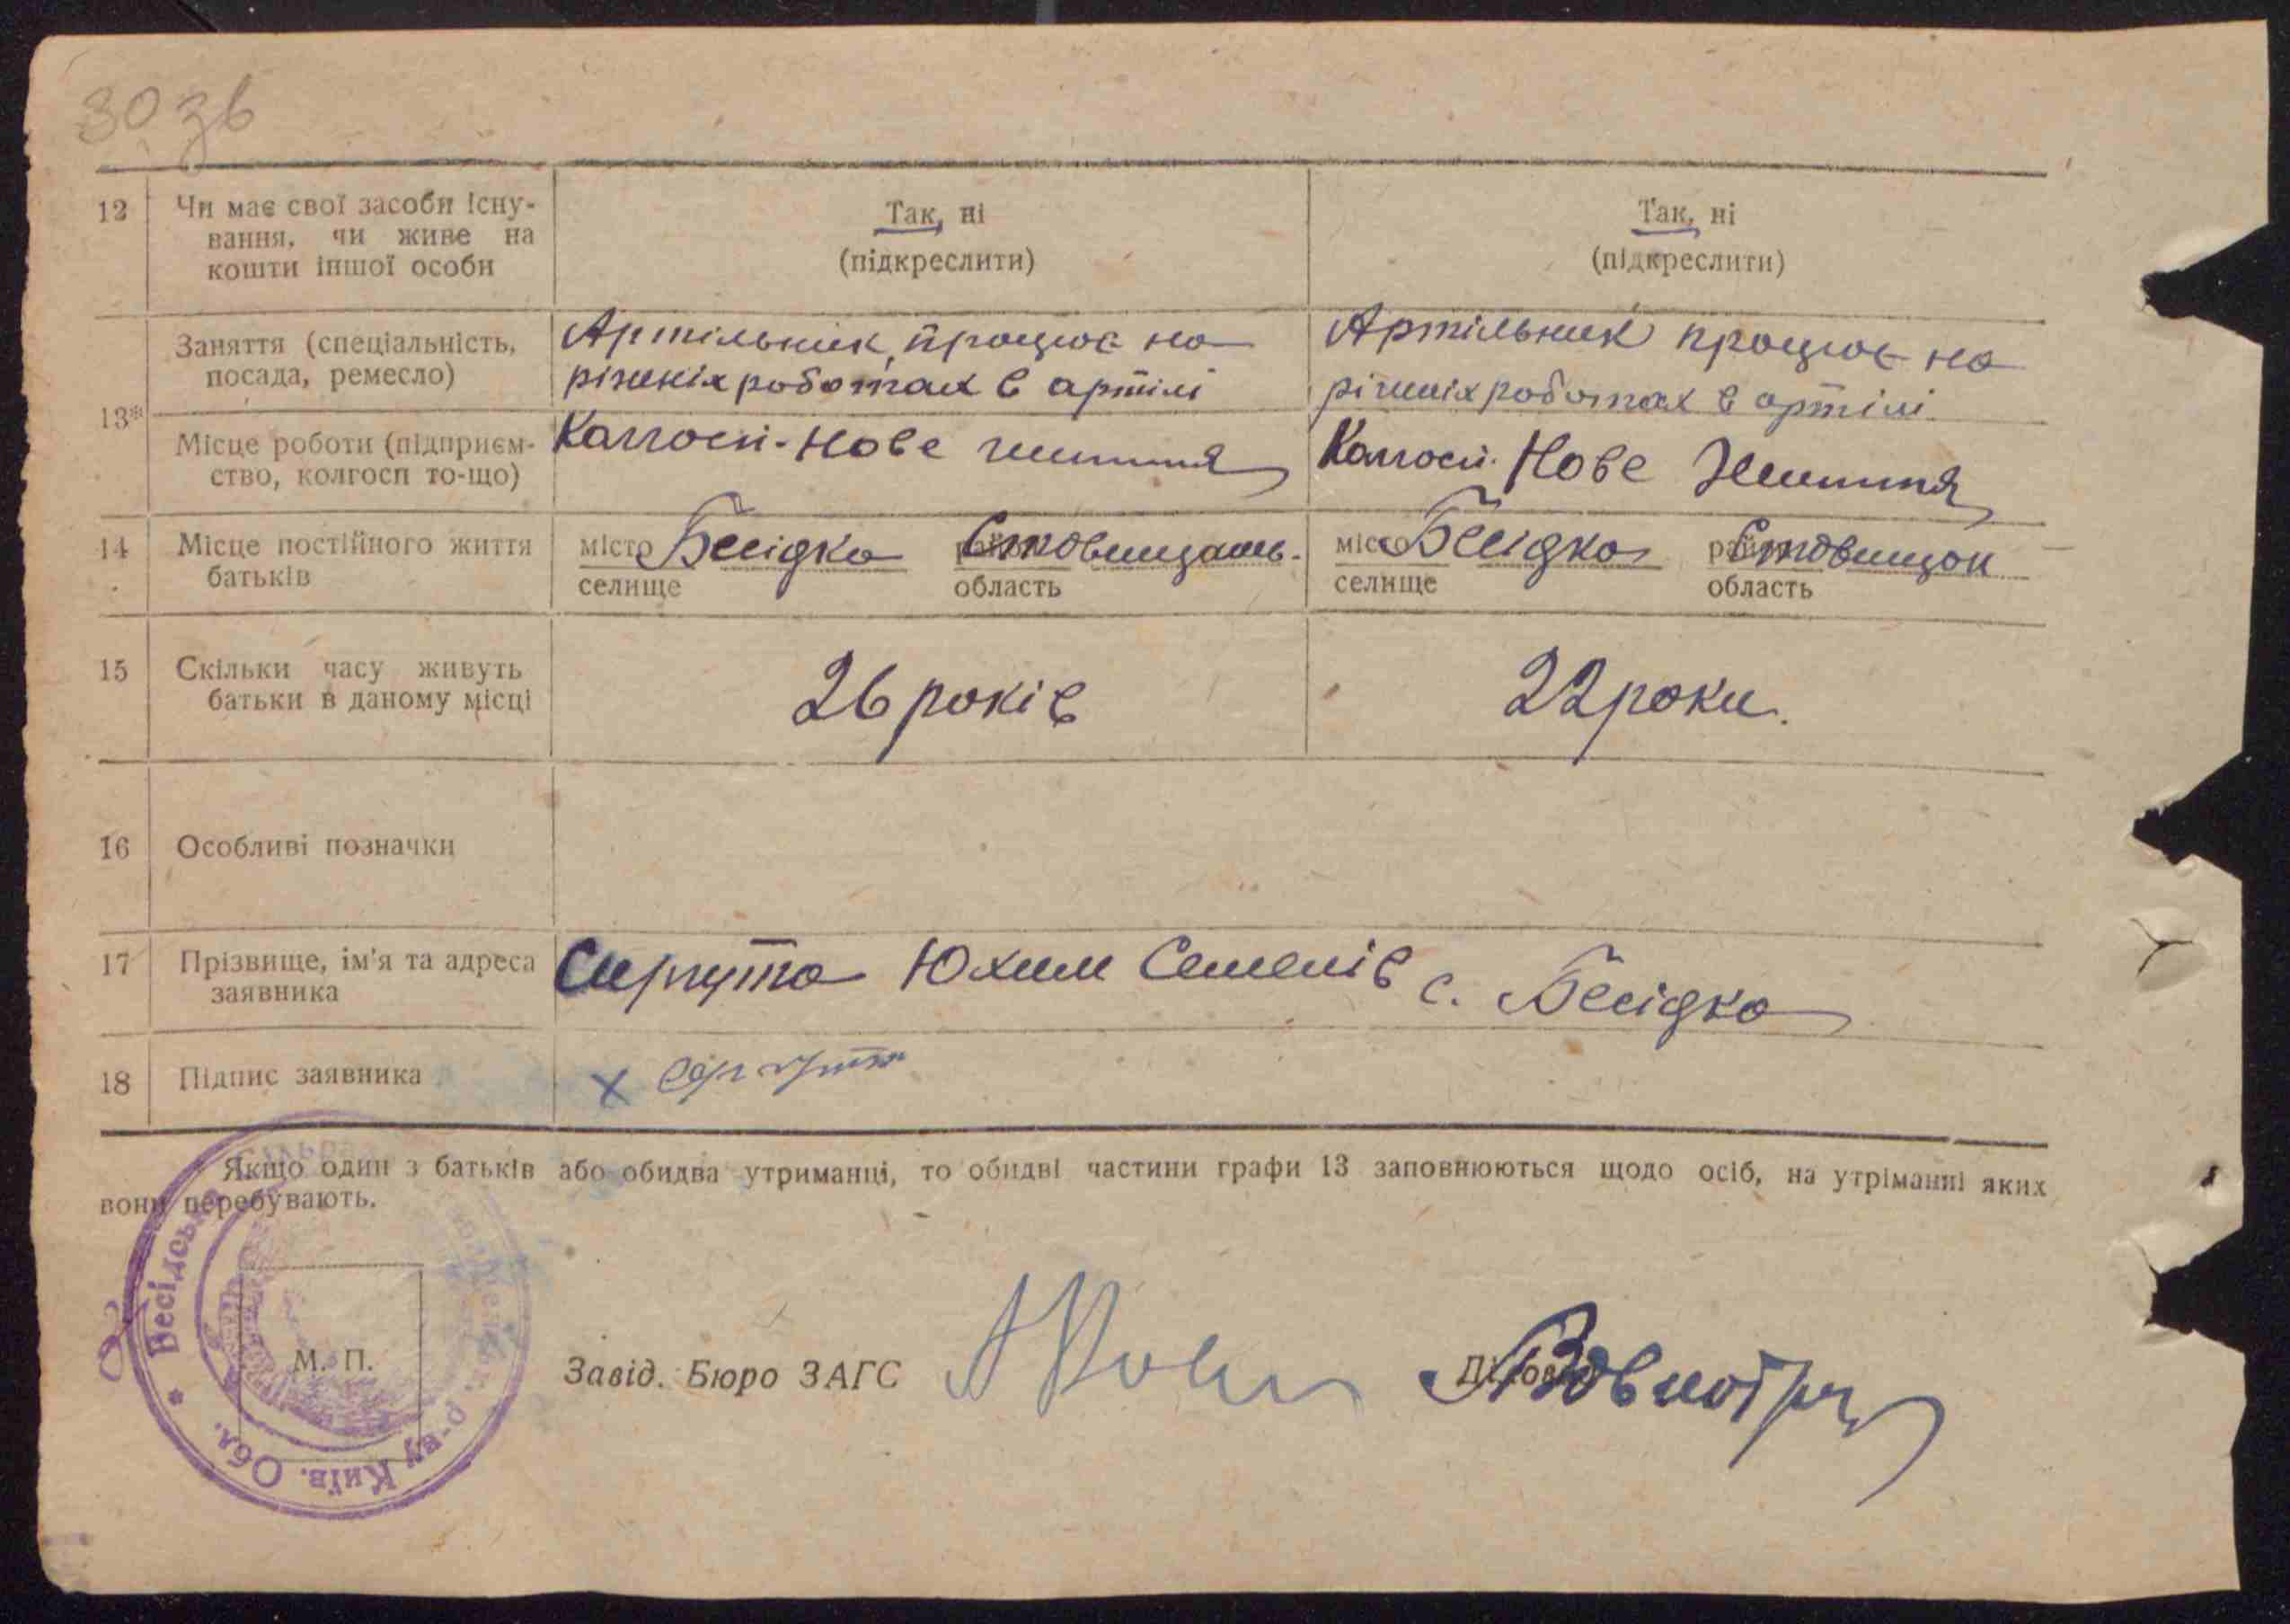 30 зв
12 Чи має свої засоби існу-
вання, чи живе на
кошти іншої особи
Так, ні
(підкреслити)
Так, ні
(підкреслити)
13*
Заняття (спеціальність,
посада, ремесло)
Артільник, працює на
ріжніх роботах в артілі
Артільник працює на
ріжніх роботах в артілі
Місце роботи (підприєм-
ство, колгосп то-що)
Колгосп- Нове життя
Колгосп. Нове Життя
14 Місце постійного життя
батьків
місто Бесідка район Ставищань-
селище область
місто Бесідка район Ставищан
селище область
15 Скільки часу живуть
батьки в даному місці
26 років
22 роки.
16 Особливі позначки
17 Прізвище, ім'я та адреса
заявника
Сиргута Юхим Семенів с. Бесідка
18 Підпис заявника
х
Якщо один з батьків або обидва утриманці, то обидві частини графи 13 заповнюються щодо осіб, на утріманні яких
вони перебувають.
Бесідська
р-ну Київ. Обл.
М. П.
Завід. Бюро ЗАГС
Діловод